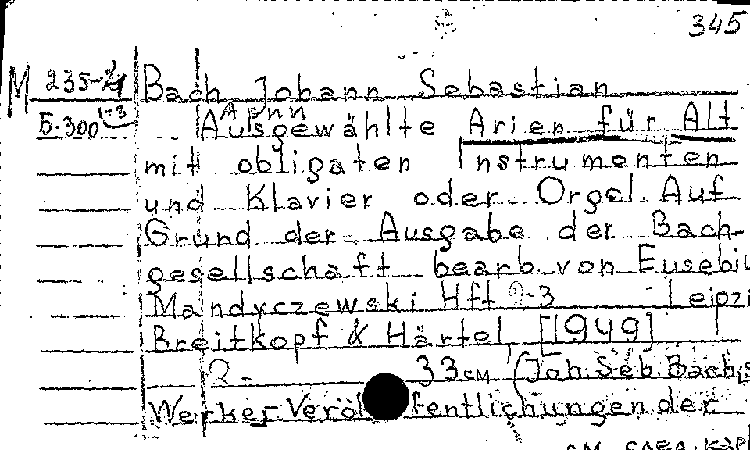 345
M 235-4
Bach Johann Sebastian
Б.300 1-3
Арии
Ausgewählte Arien für Alt
mit obligaten Instrumenten
und Klavier oder Orgel. Auf
Grund der Ausgabe der Bach-
gesellschaft bearb. von Eusebiu
Mandyczewski Hft 2-3 Leipzi
Breitkopf & Härtel [1949]
2- 33 cм (Joh. Seb. Bachs
Werke. Veröffentlichungen der
см. след. карт